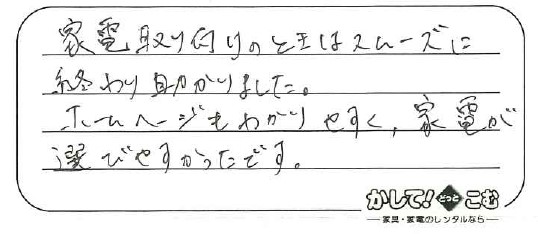 家電取り付けのときはスムーズに
終わり助かりました。
ホームページもわかりやすく、家電が
選びやすかったです。
かして!どっとこむ
家具・家電のレンタルなら